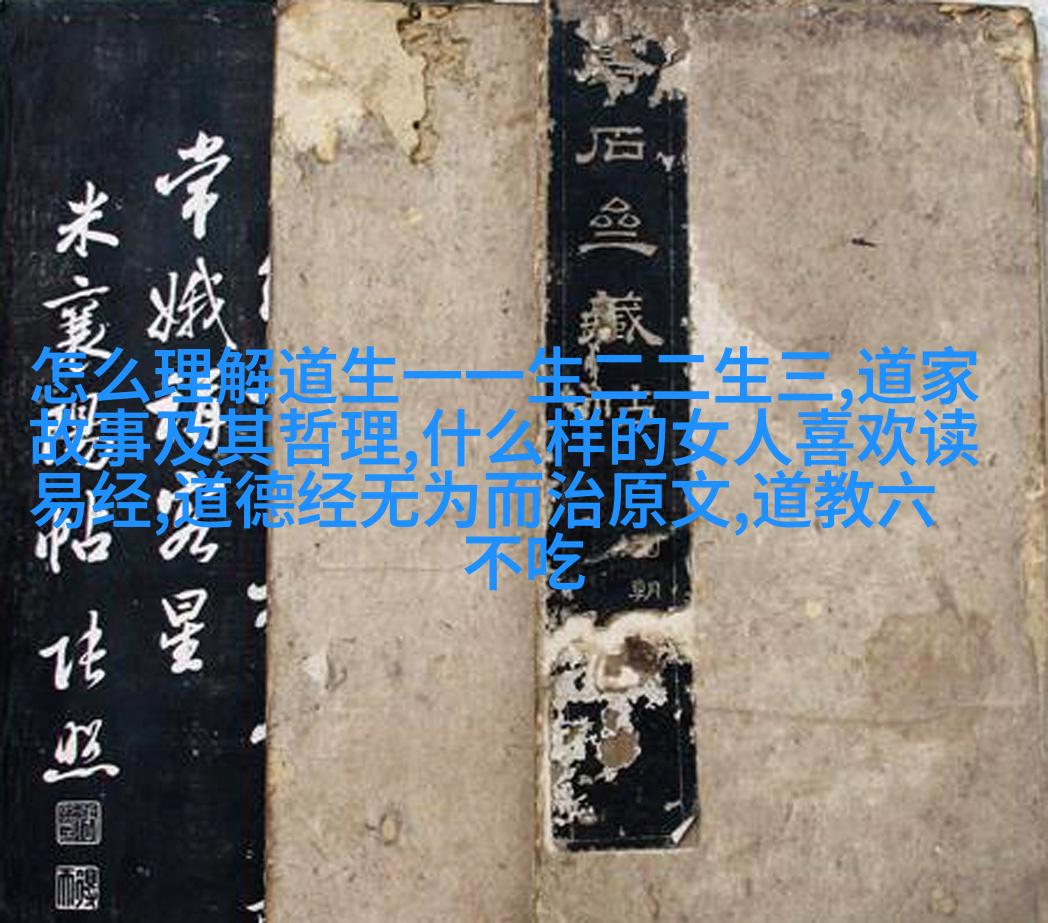 怎么理解道生一一生二二生三,道家
故事及其哲理,什么样的女人喜欢读
易经,道德经无为而治原文,道教六
不吃
常娥請客星
米襄陽帖
张照
石
藏
朝